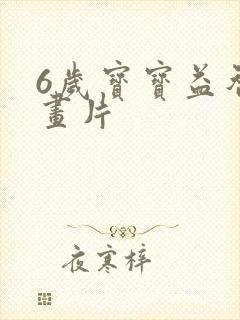 6歲寶寶益
畫片
夜寒梓